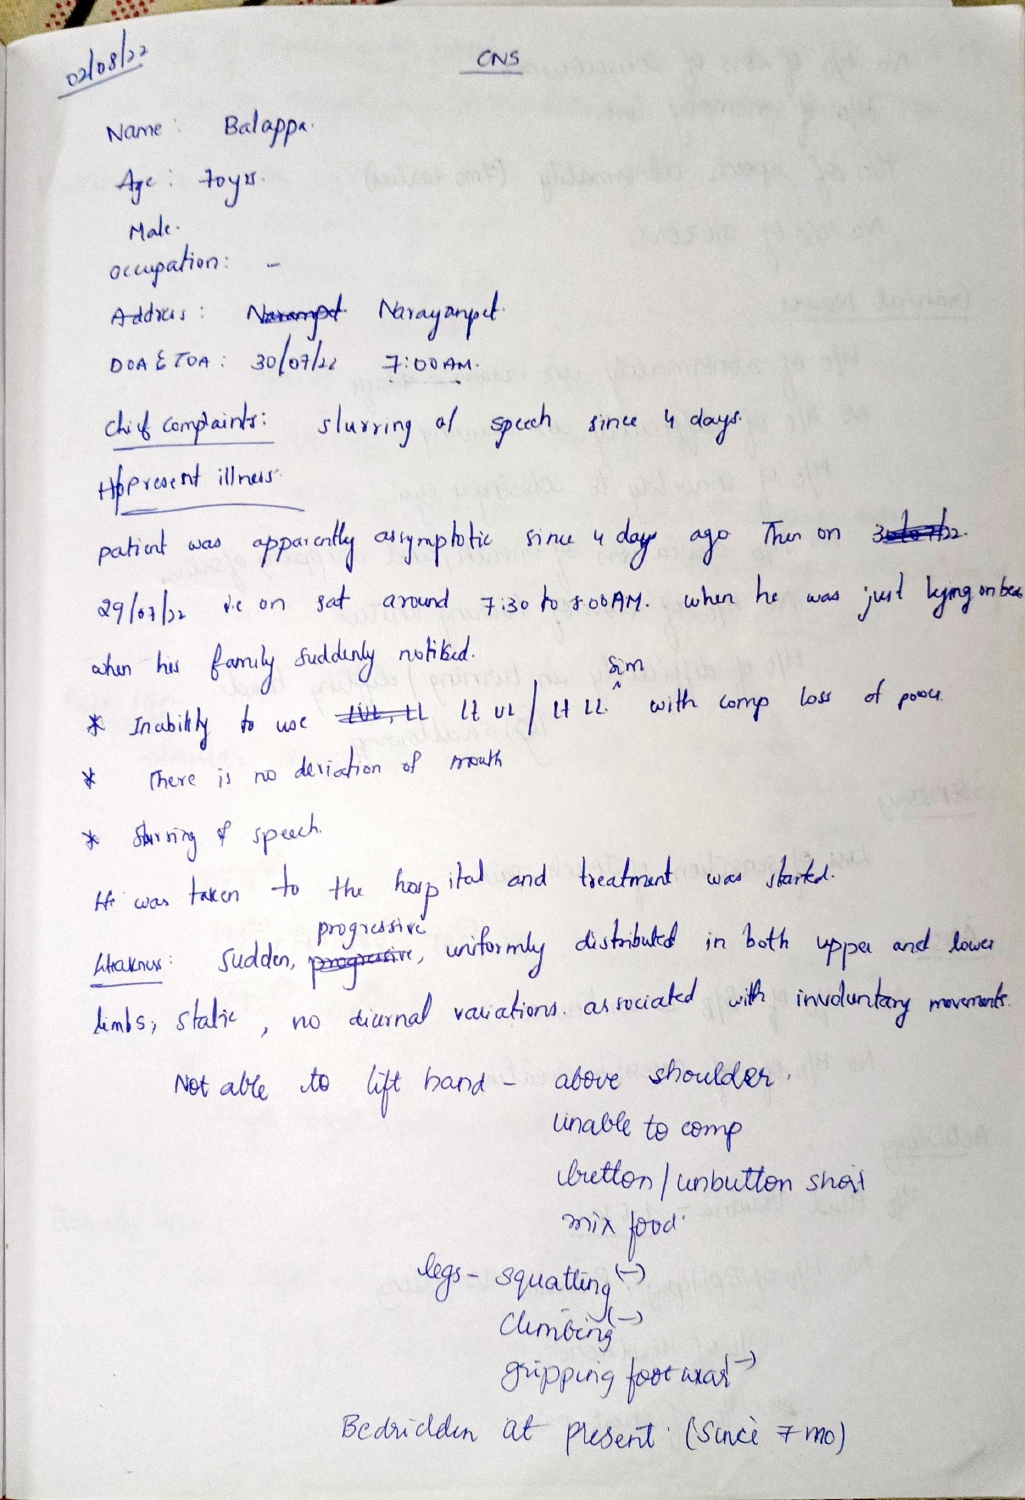 02/08/22
CNS
Name : Balappa.
Age : 70yrs.
Male.
occupation: -
Address : Narayanpet.
DOA & TOA : 30/07/22 7:00AM.
chief complaints: slurring of speech since 4 days.
H/o present illness
patient was apparently assymptotic since 4 day ago Then on
29/07/22 i.e on sat around 7:30 to 8:00AM. when he was just lying on bed
when his family suddenly notised.
* Inability to use Lt UL / Lt LL sim with comp loss of power.
* There is no deviation of mouth
* slurring of speech.
He was taken to the hospital and treatment was started.
Weakness: Sudden, progressive, uniformly distributed in both upper and lower
limbs, static, no diurnal variations. associated with involuntary movements.
Not able to lift hand - above shoulder.
Unable to comp
button / unbutton shirt
mix food
legs - squatting (-)
Climbing (-)
gripping footwear (-)
Bedridden at present (since 7 mo)